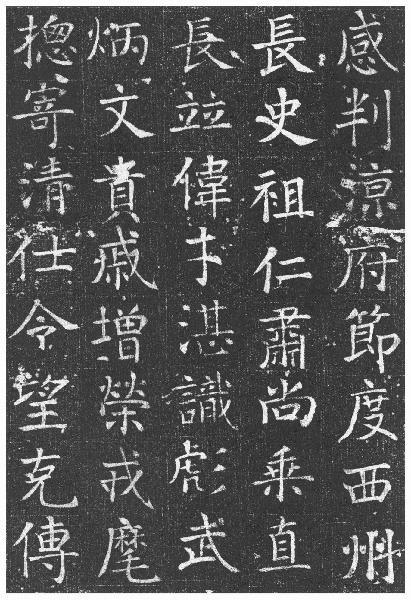 感判涼府節度西州
長史祖仁肅尚乗直
長並偉才湛識彪武
炳文貴戚增榮戎麾
摠寄清仕令望克傳